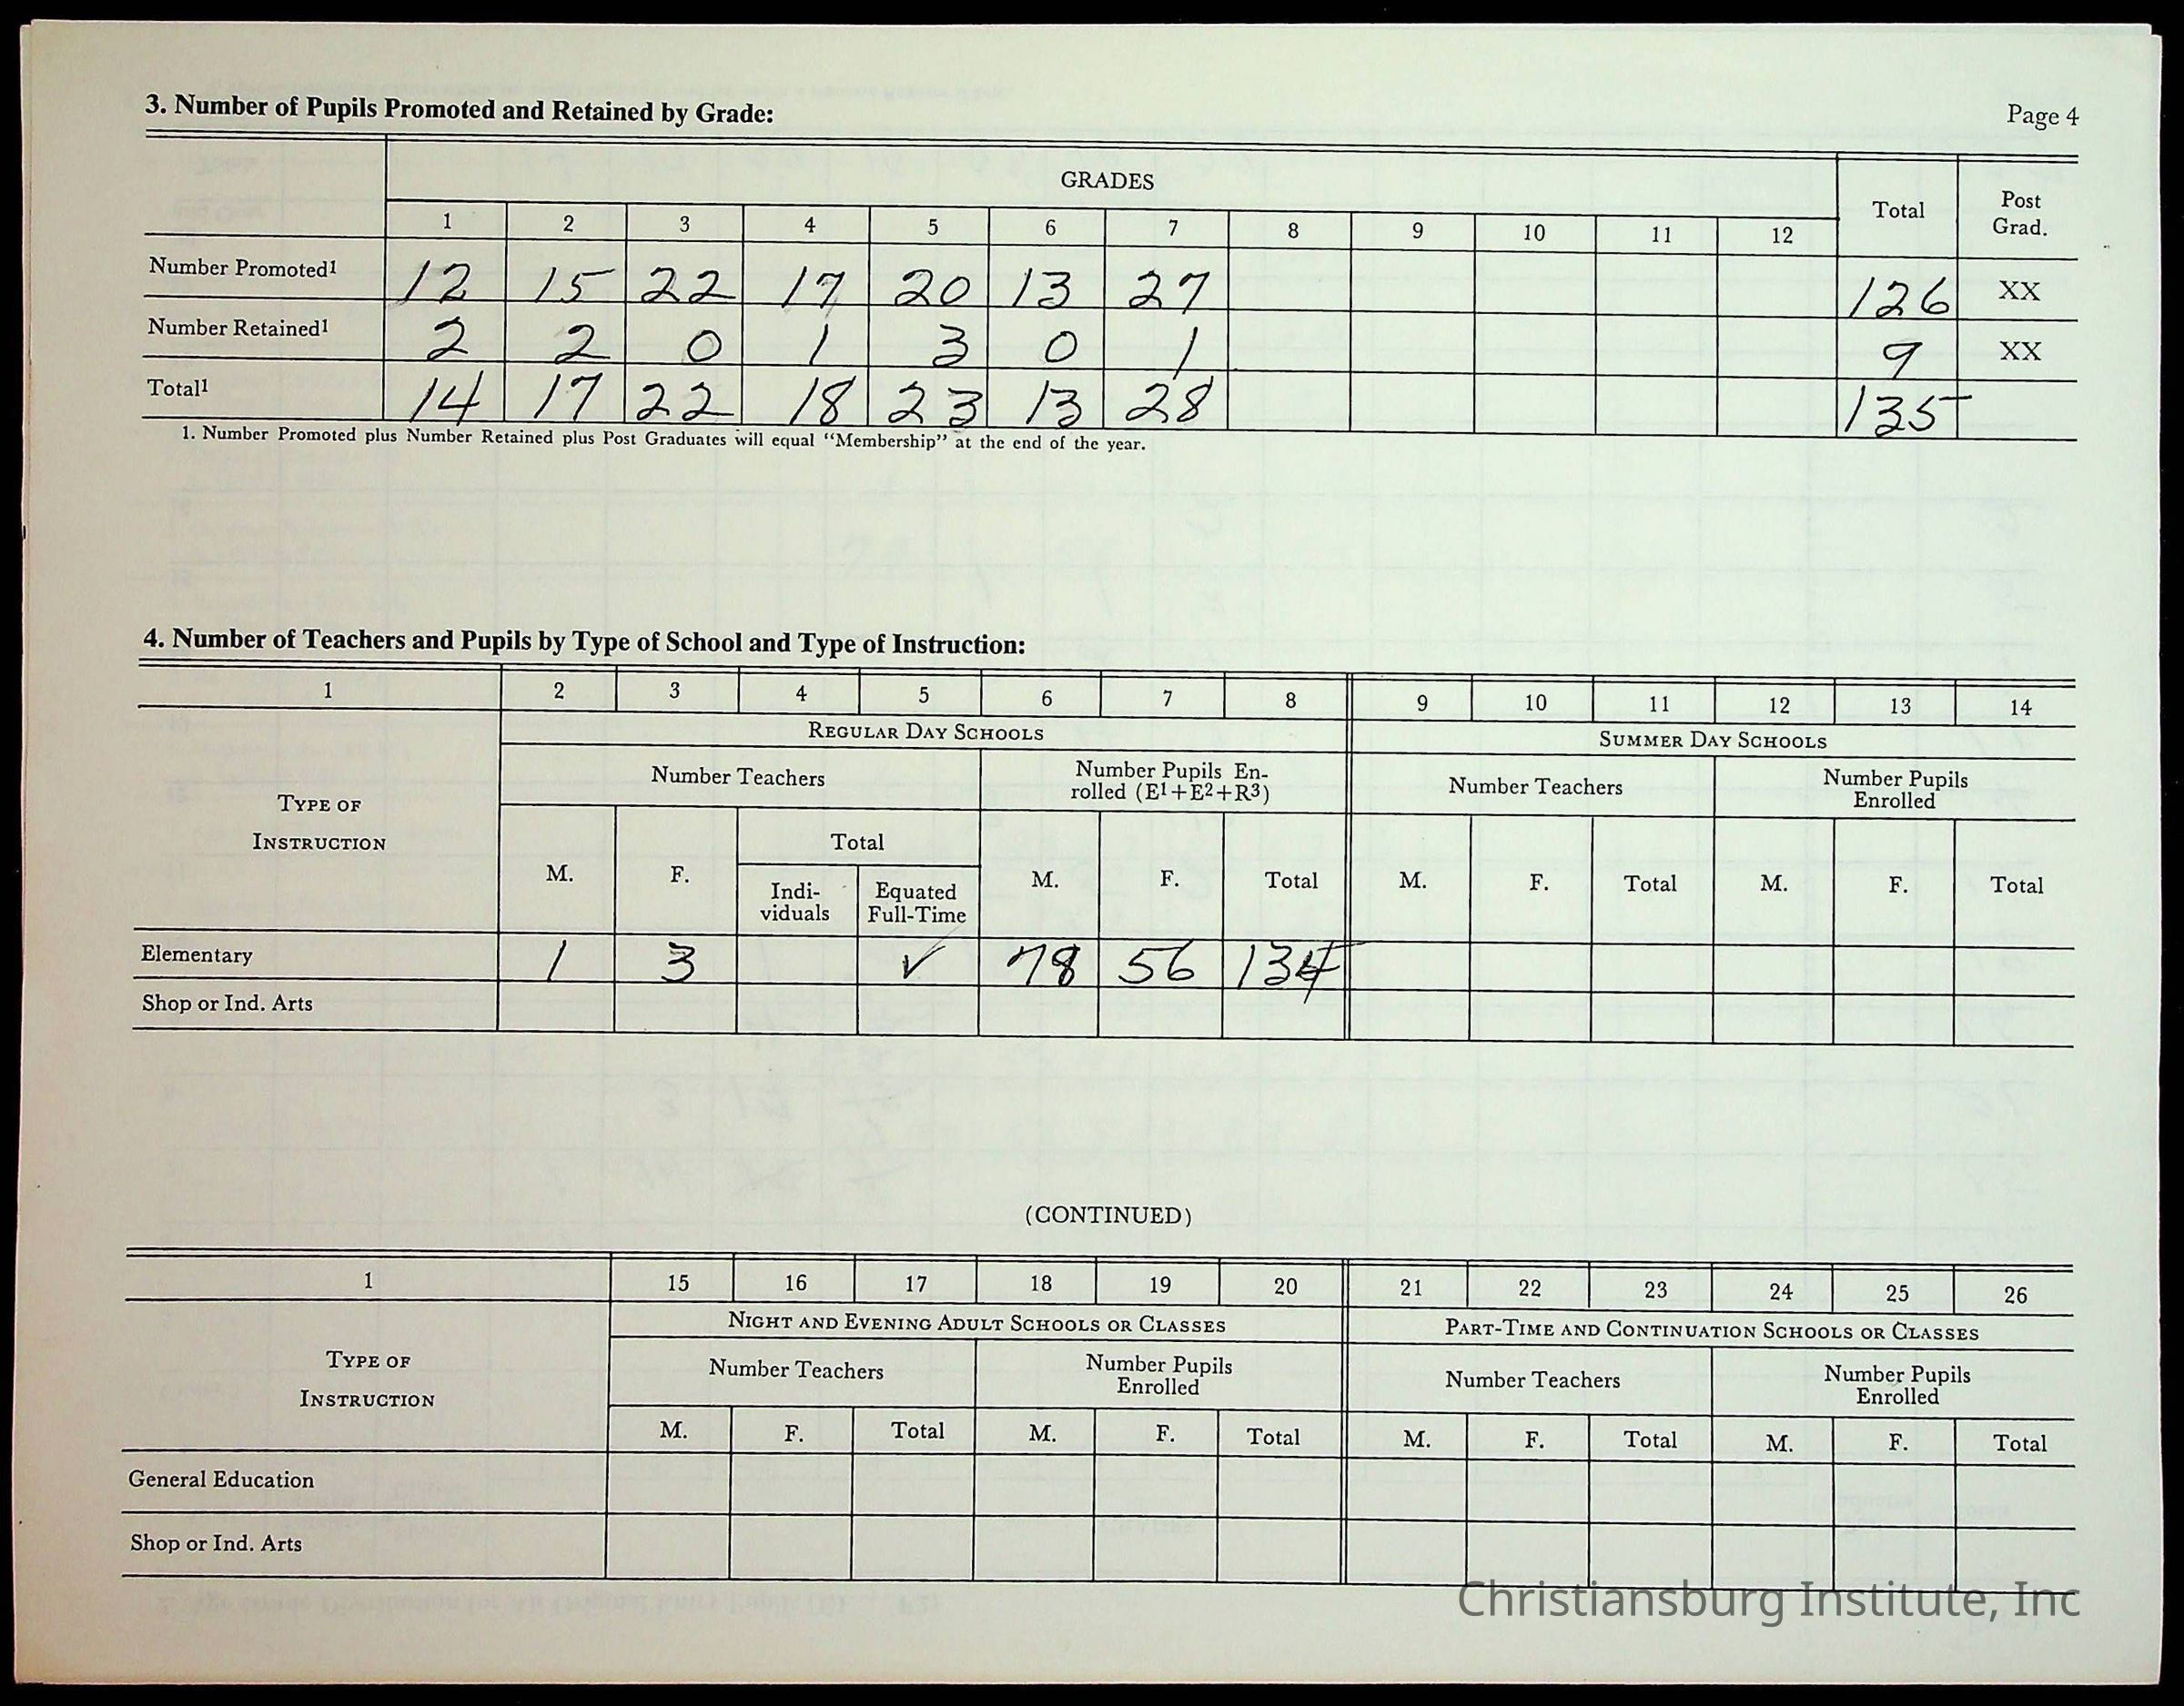 3. Number of Pupils Promoted and Retained by Grade:
Page 4
GRADES
Total
Post Grad.
1 2 3 4 5 6 7 8 9 10 11 12
Number Promoted1 12 15 22 17 20 13 27 126 XX
Number Retained1 2 2 0 1 3 0 1 9 XX
Total1 14 17 22 18 23 13 28 135
1. Number Promoted plus Number Retained plus Post Graduates will equal “Membership” at the end of the year.
4. Number of Teachers and Pupils by Type of School and Type of Instruction:
1 2 3 4 5 6 7 8 9 10 11 12 13 14
TYPE OF INSTRUCTION
REGULAR DAY SCHOOLS
SUMMER DAY SCHOOLS
Number Teachers
Number Pupils En-
rolled (E1+E2+R3)
Number Teachers
Number Pupils
Enrolled
M. F.
Total
Indi-
viduals
Equated
Full-Time
M. F. Total M. F. Total M. F. Total
Elementary 1 3 ✓ 78 56 134
Shop or Ind. Arts
(CONTINUED)
1 15 16 17 18 19 20 21 22 23 24 25 26
TYPE OF
INSTRUCTION
NIGHT AND EVENING ADULT SCHOOLS OR CLASSES
PART-TIME AND CONTINUATION SCHOOLS OR CLASSES
Number Teachers
Number Pupils
Enrolled
Number Teachers
Number Pupils
Enrolled
M. F. Total M. F. Total M. F. Total M. F. Total
General Education
Shop or Ind. Arts
Christiansburg Institute, Inc